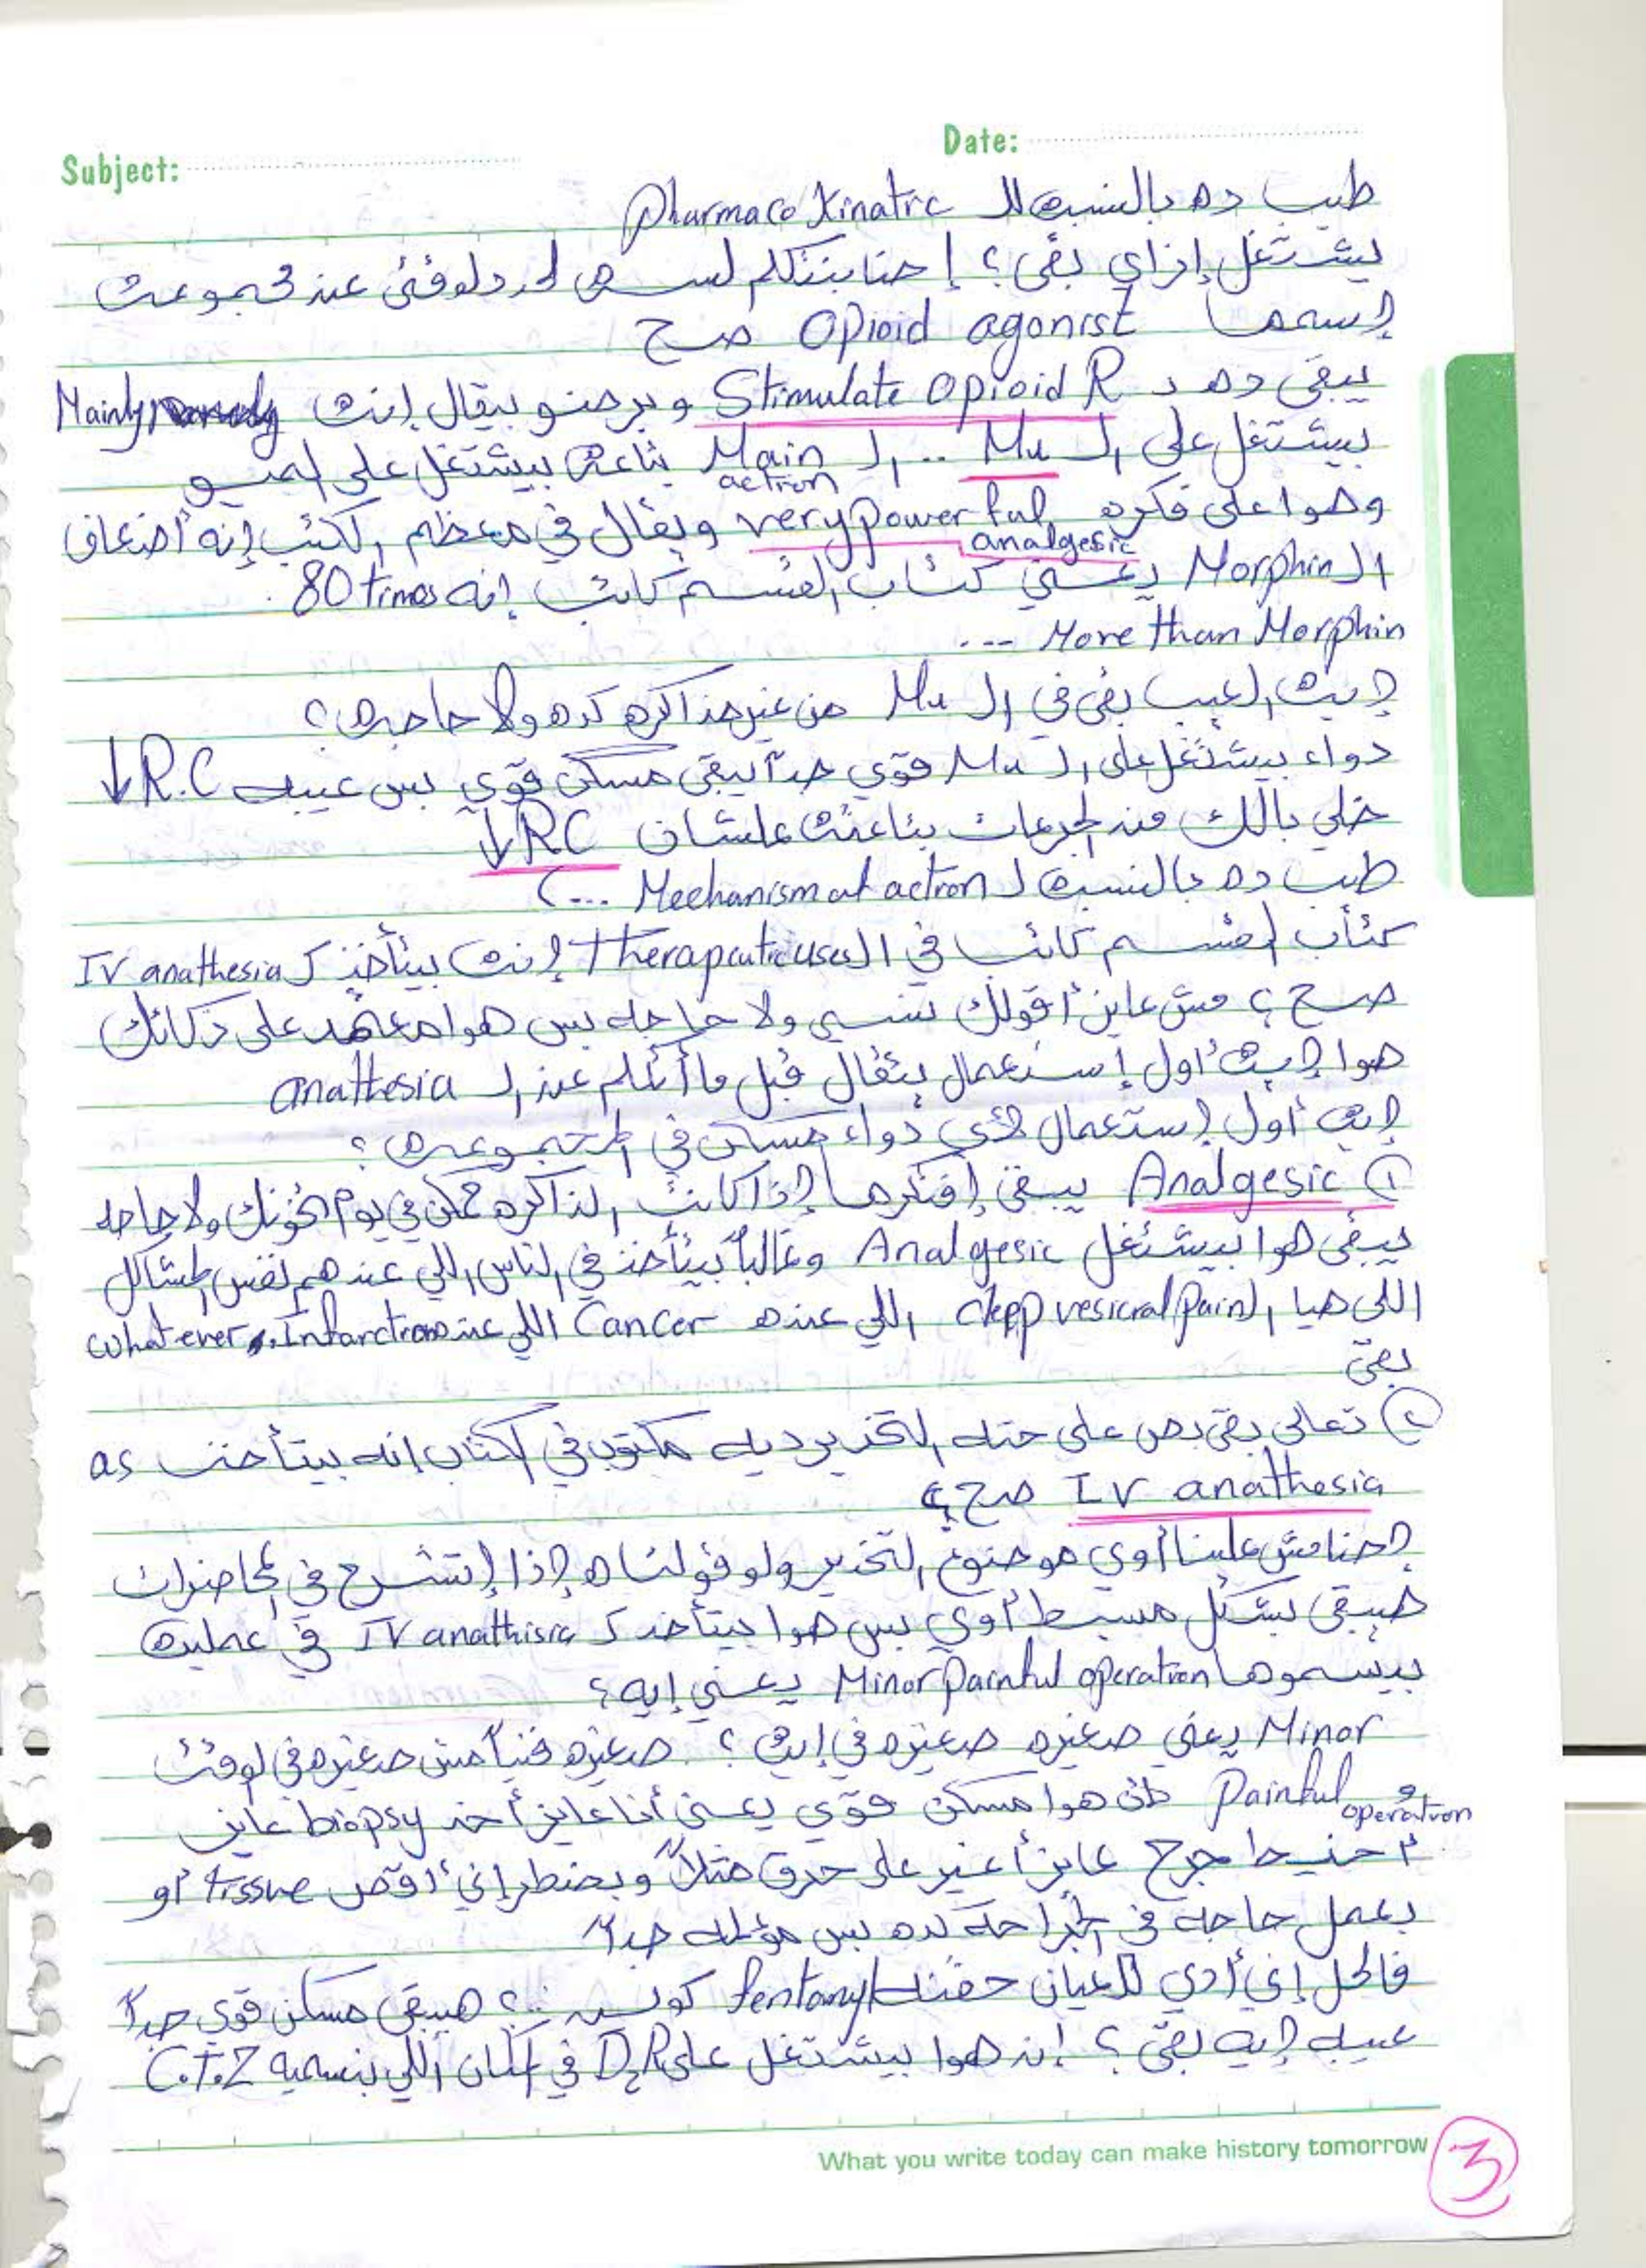 Subject:
Date:
طيب ده بالنسبه لل pharmaco kinatic
بيشتغل إزاي بقى؟ إحنا بنتكلم لسه لحد دلوقتى عند مجموعه
إسمها Opioid agonist صح
يبقى ده د Stimulate Opioid R وبرضو بيقال إنه Mainly
بيشتغل على الـ Mu .. الـ Main action بتاعه بيشتغل على الميو
وهوا على فكره very powerful analgesic ويقال في معظم الكتب إنه أضعاف
الـ Morphin يعني كتاب القسم كاتب إنه 80 times
More than Morphin ...
إيه العيب بقى في الـ Mu من غير مذاكره كده ولا حاجه؟
دواء بيشتغل على الـ Mu قوي جداً يبقى مسكن قوي بس عيبه R.C ↓
خلي بالك من الجرعات بتاعته علشان RC ↓
طيب ده بالنسبه لـ Mechanism of action ...)
كتاب القسم كاتب في الـ Therapeutic uses إنه بيتأخذ كـ IV anathesia
صح؟ مش عايز أقولك تنسى ولا حاجه بس هوا معتمد على ذكائك
هوا إيه أول إستعمال يتقال قبل ما أتكلم عن الـ anathesia
إيه أول إستعمال لأي دواء مسكن في المجموعه؟
① Analgesic يبقى إفتكرها إذا كانت المذاكره ممكن في يوم تخونك ولا حاجه
يبقى هوا بيشتغل Analgesic وغالباً بيتأخذ في الناس اللي عندهم نفس المشاكل
اللي هيا (depp vesicral pain) اللي عنده Cancer اللي عنده Infarction whatever
بقى
② تعالى بقى بص على حته التخدير ديه مكتوب في الكتاب إنه بيتأخذ as
IV anathesia صح؟
إحنا مش علينا أوي موضوع التخدير ولو قولناه إذا إتشرح في المحاضرات
هيبقى بشكل مبسط أوي بس هوا بيتأخد كـ IV anathisia في عمليه
بيسموها Minor painful operation يعني إيه؟
Minor يعني صغيره صغيره في إيه؟ صغيره فنياً مش صغيره في الوقت
و Painful operation طب هوا مسكن قوي يعني أنا عايز أخد biopsy عايز
أخيط جرح عايز أغير على حرق مثلاً وبضطر إني أقص tissue أو
بعمل حاجه في الجراحه كده بس مؤلمه جداً
فالحل إني أدي للعيان حقنه fentanyl كويس ..؟ هيبقى مسكن قوي جداً
عيبه إيه بقى؟ إنه هوا بيشتغل على D2R في المكان اللي بنسميه C.T.Z
What you write today can make history tomorrow
3